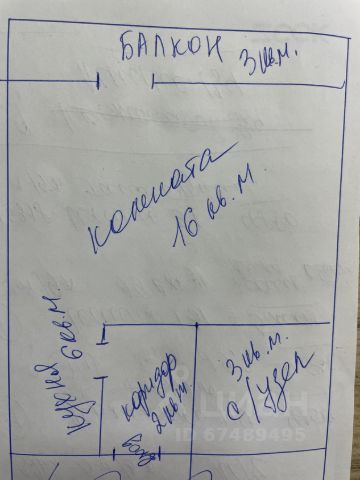 БАЛКОН 3 кв.м.
комната
16 кв.м.
кухня
6 кв.м.
коридор
2 кв.м
вход
3 кв.м.
с/узел
ЦИАН
ID 67489495